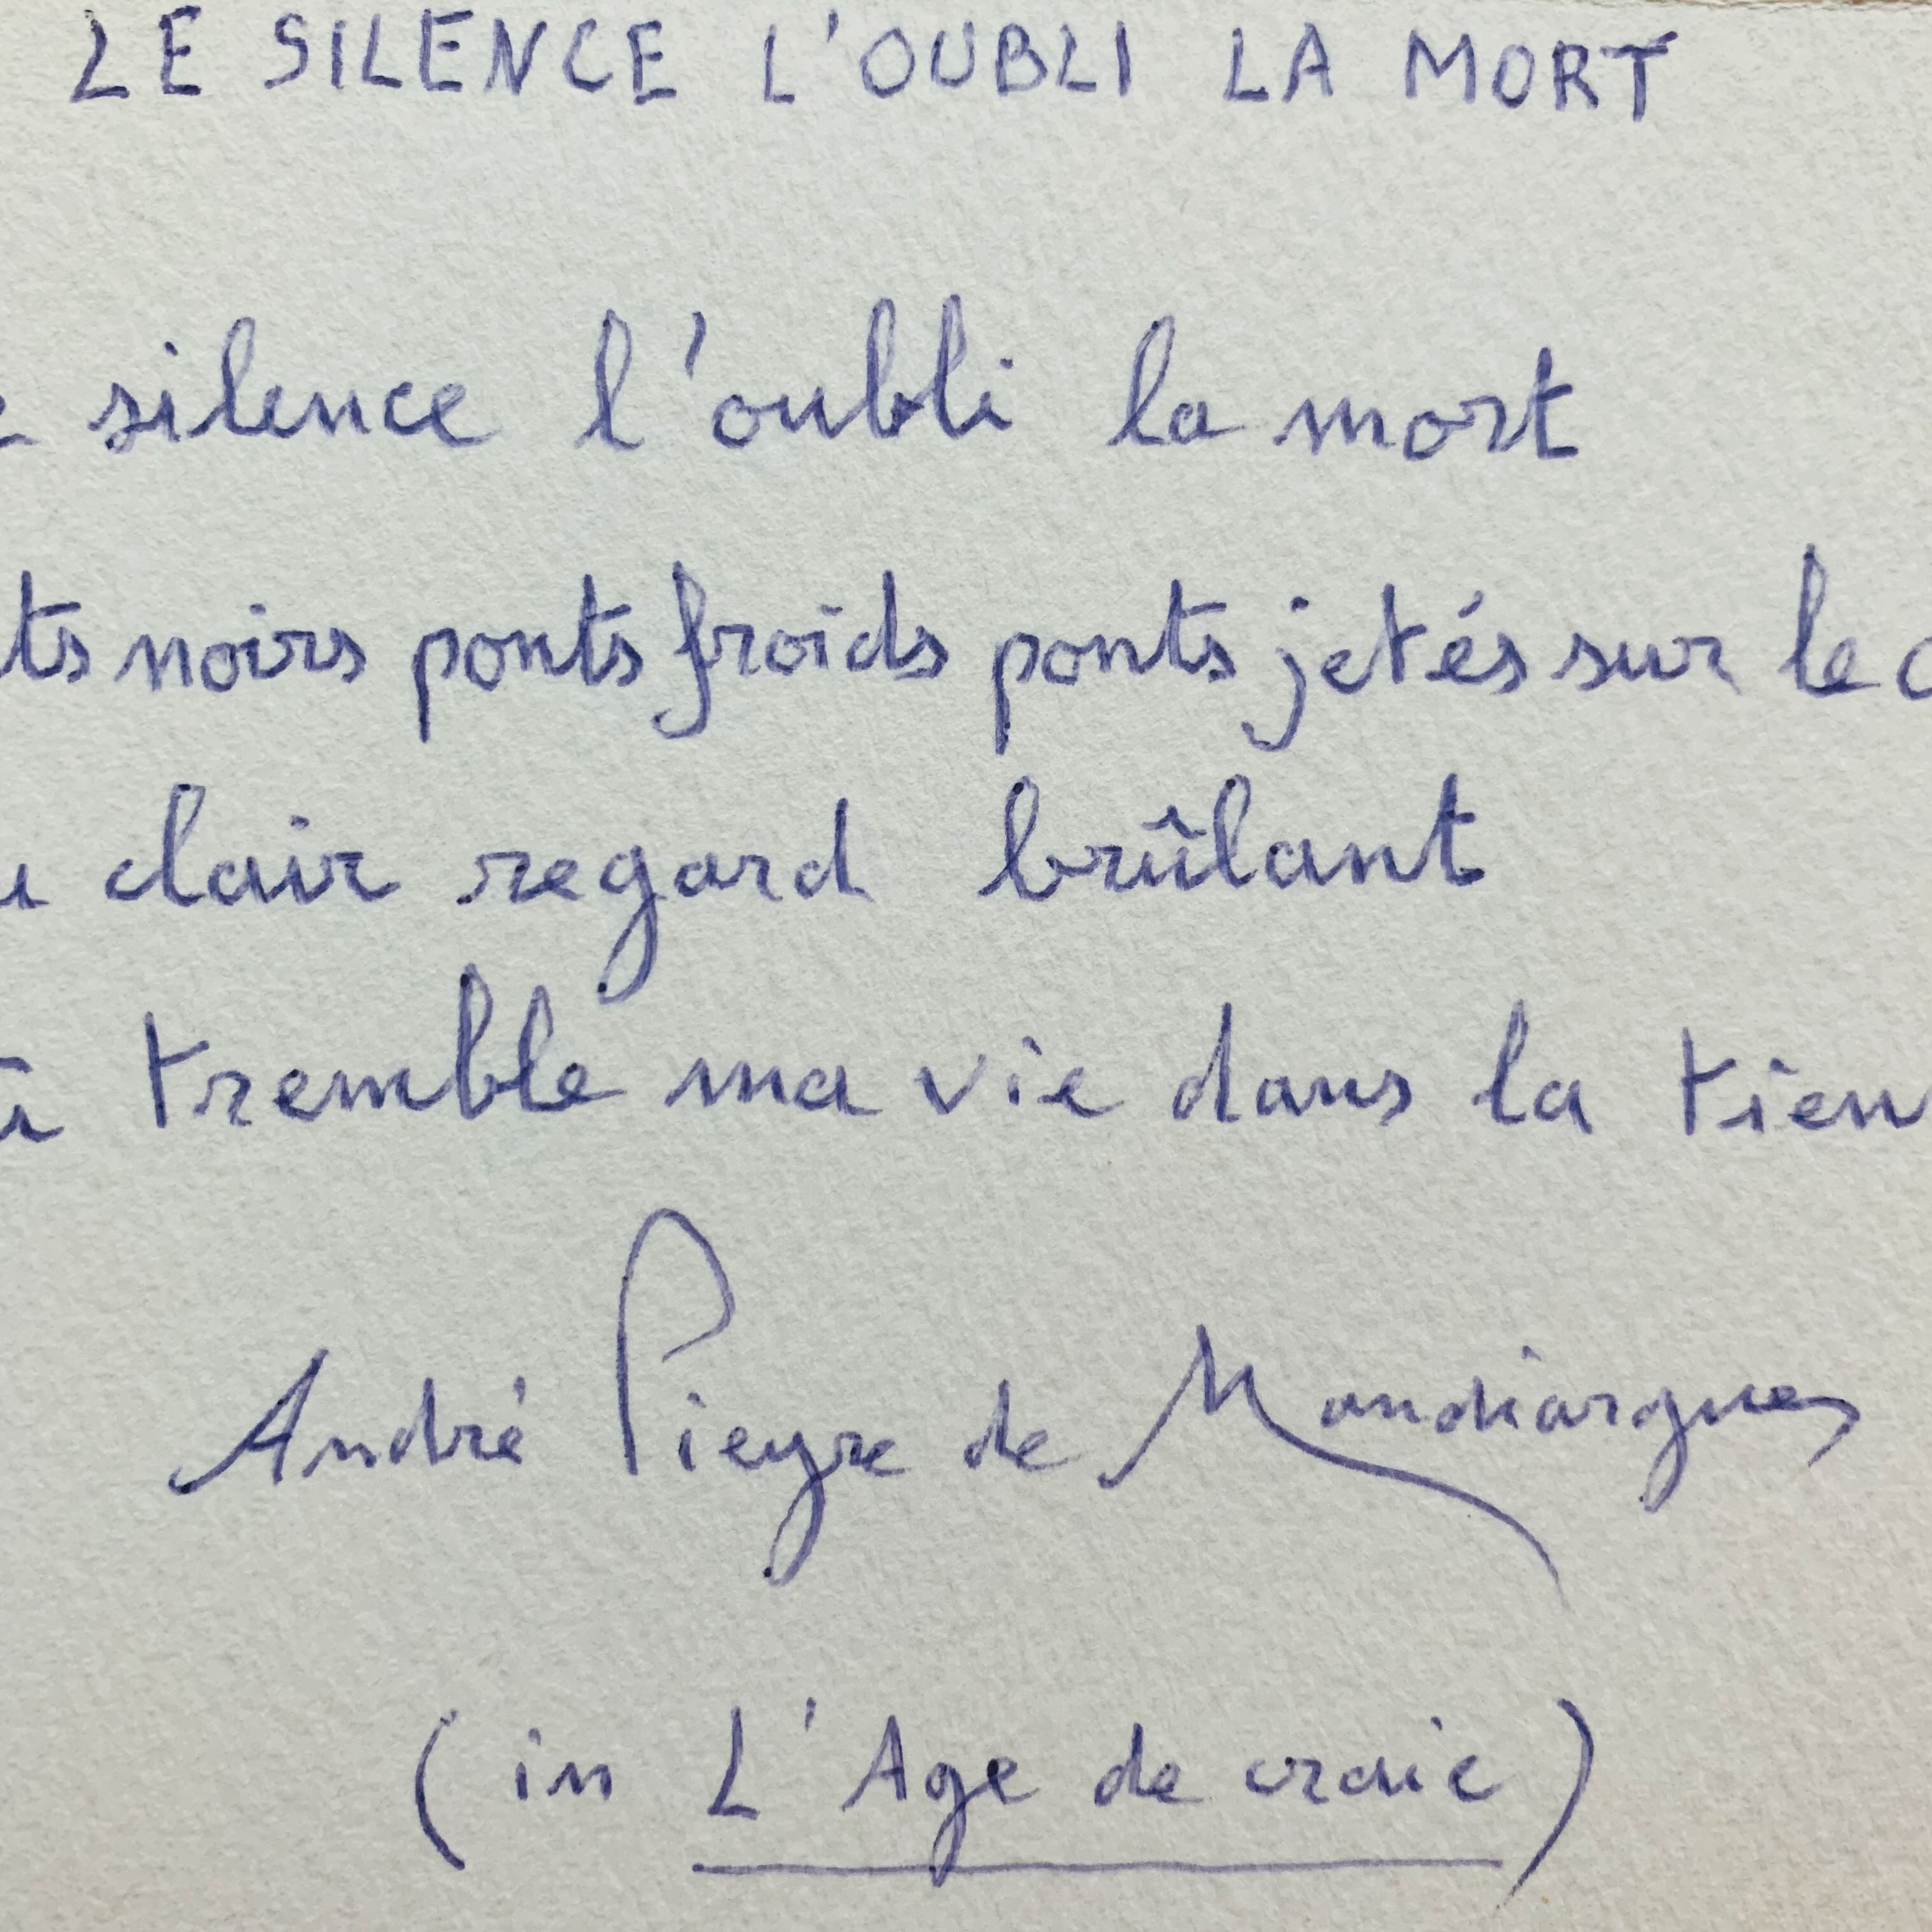 LE SILENCE L'OUBLI LA MORT
silence l'oubli la mort
ts noirs ponts froids ponts jetés sur le
clair regard brûlant
tremble ma vie dans la tien
André Pieyre de Mandiargues
(in L'Age de craie)